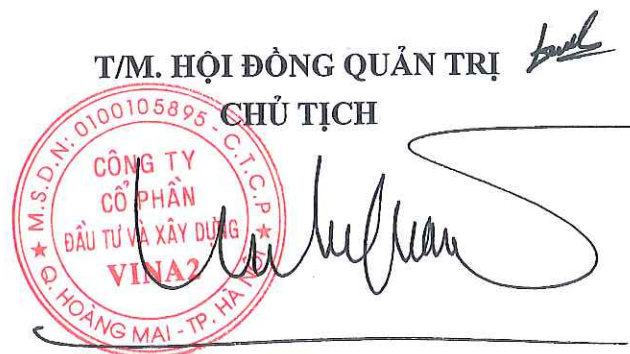 T/M. HỘI ĐỒNG QUẢN TRỊ
CHỦ TỊCH
M.S.D.N: 0100105895 - C.T.C.P
CÔNG TY
CỔ PHẦN
ĐẦU TƯ VÀ XÂY DỰNG
VINA2
Q. HOÀNG MAI - TP. HÀ NỘI